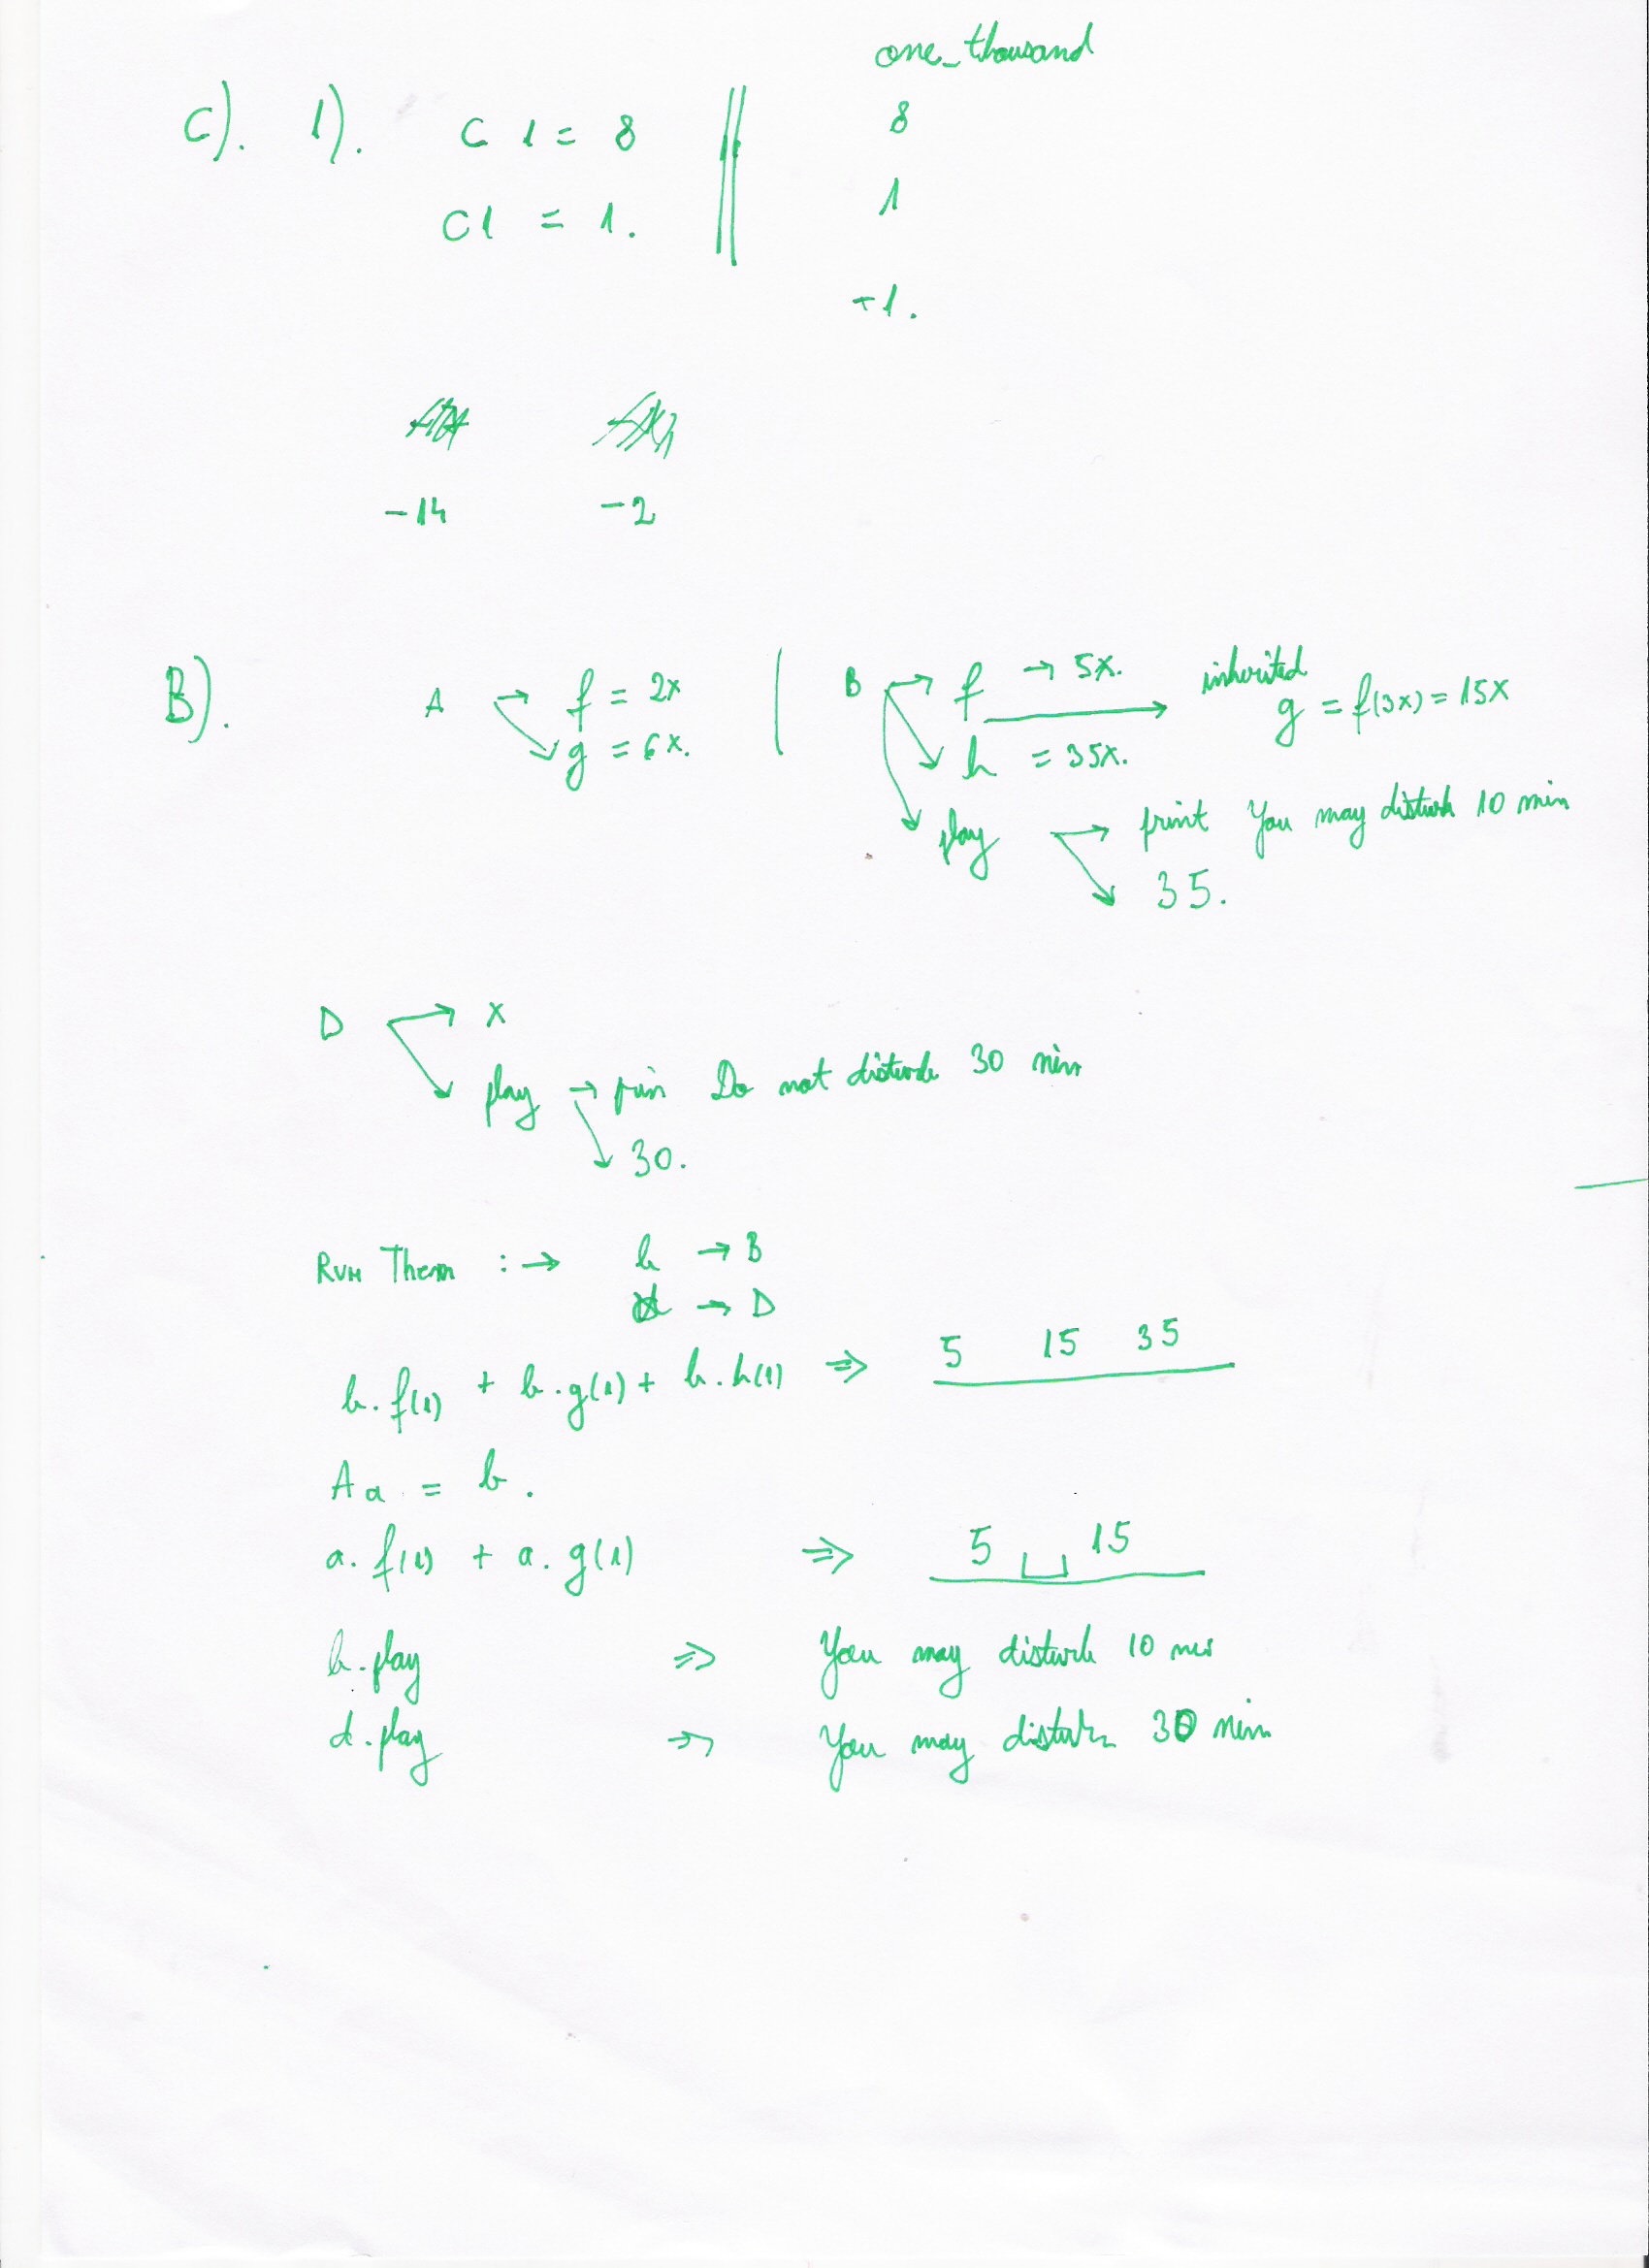 one_thousand
C). 1). C 1 = 8 || 8
C1 = 1. 1
+1.
-14 -2
B). A → f = 2x | B → f → 5x. inherited
g = 6x. g = f(3x) = 15x
h = 35x.
play → print You may disturb 10 min
35.
D → x
play → prin Do not disturb 30 min
30.
Run Them : → b → B
d → D
b.f(1) + b.g(1) + b.h(1) ⇒ 5 15 35
A a = b.
a.f(1) + a.g(1) ⇒ 5 ⎵ 15
b.play ⇒ You may disturb 10 min
d.play ⇒ You may disturb 30 min